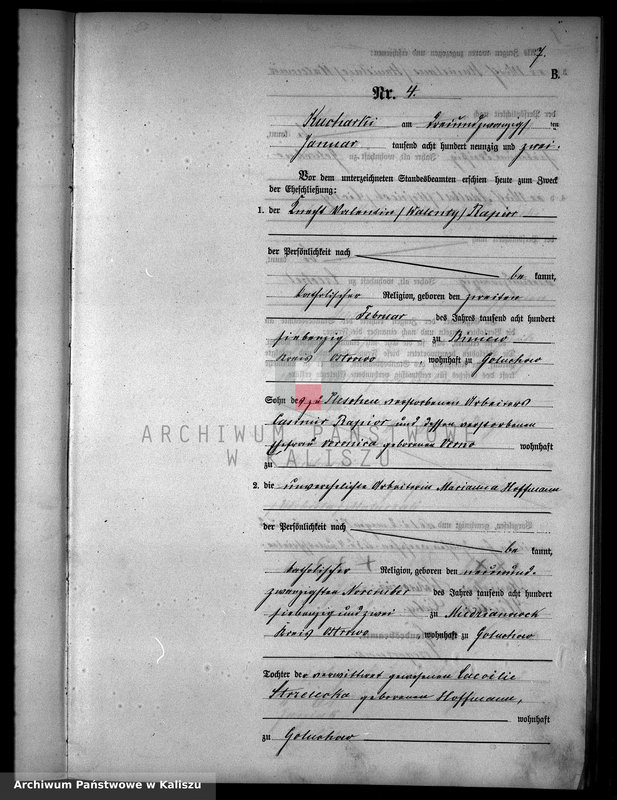 7.
B.
Nr. 4.
Kucharki am dreiundzwanzigsten
Januar tausend acht hundert neunzig und zwei
Vor dem unterzeichneten Standesbeamten erschien heute zum Zweck
der Eheschließung:
1. der Knecht Valentin /Walenty/ Rapior
der Persönlichkeit nach
be kannt,
katholischer Religion, geboren den zweiten
Februar des Jahres tausend acht hundert
siebenzig zu Biniew
Kreis Ostrowo, wohnhaft zu Goluchow
Sohn des zu verstorbenen Arbeiters
Casimir Rapior und dessen verstorbenen
Ehefrau Veronica geborenen wohnhaft
zu
2. die unverehelichte Arbeiterin Marianna Hoffmann
der Persönlichkeit nach
be kannt,
katholischer Religion, geboren den neunund-
zwanzigsten November des Jahres tausend acht hundert
siebenzig und zwei zu
Kreis Ostrowo wohnhaft zu Goluchow
Tochter der verwittwet gewesenen Caecilie
Strzelecka geborenen Hoffmann,
wohnhaft
zu Goluchow
ARCHIWUM PAŃSTWOWE
W KALISZU
Archiwum Państwowe w Kaliszu